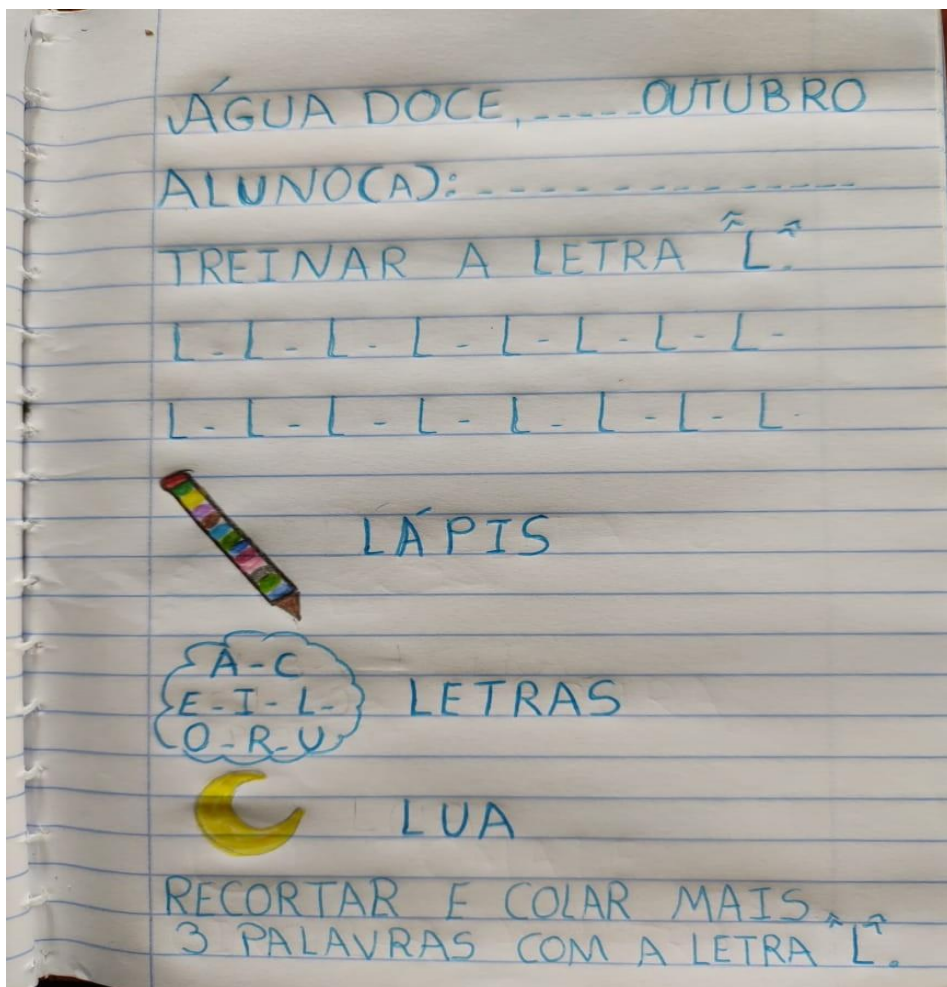 ÁGUA DOCE, ----- OUTUBRO
ALUNO(A): - - - - - - - - - - - - - - -
TREINAR A LETRA "L".
L - L - L - L - L - L - L - L -
L - L - L - L - L - L - L - L -
LÁPIS
A - C
E - I - L -
O - R - U
LETRAS
LUA
RECORTAR E COLAR MAIS
3 PALAVRAS COM A LETRA "L".